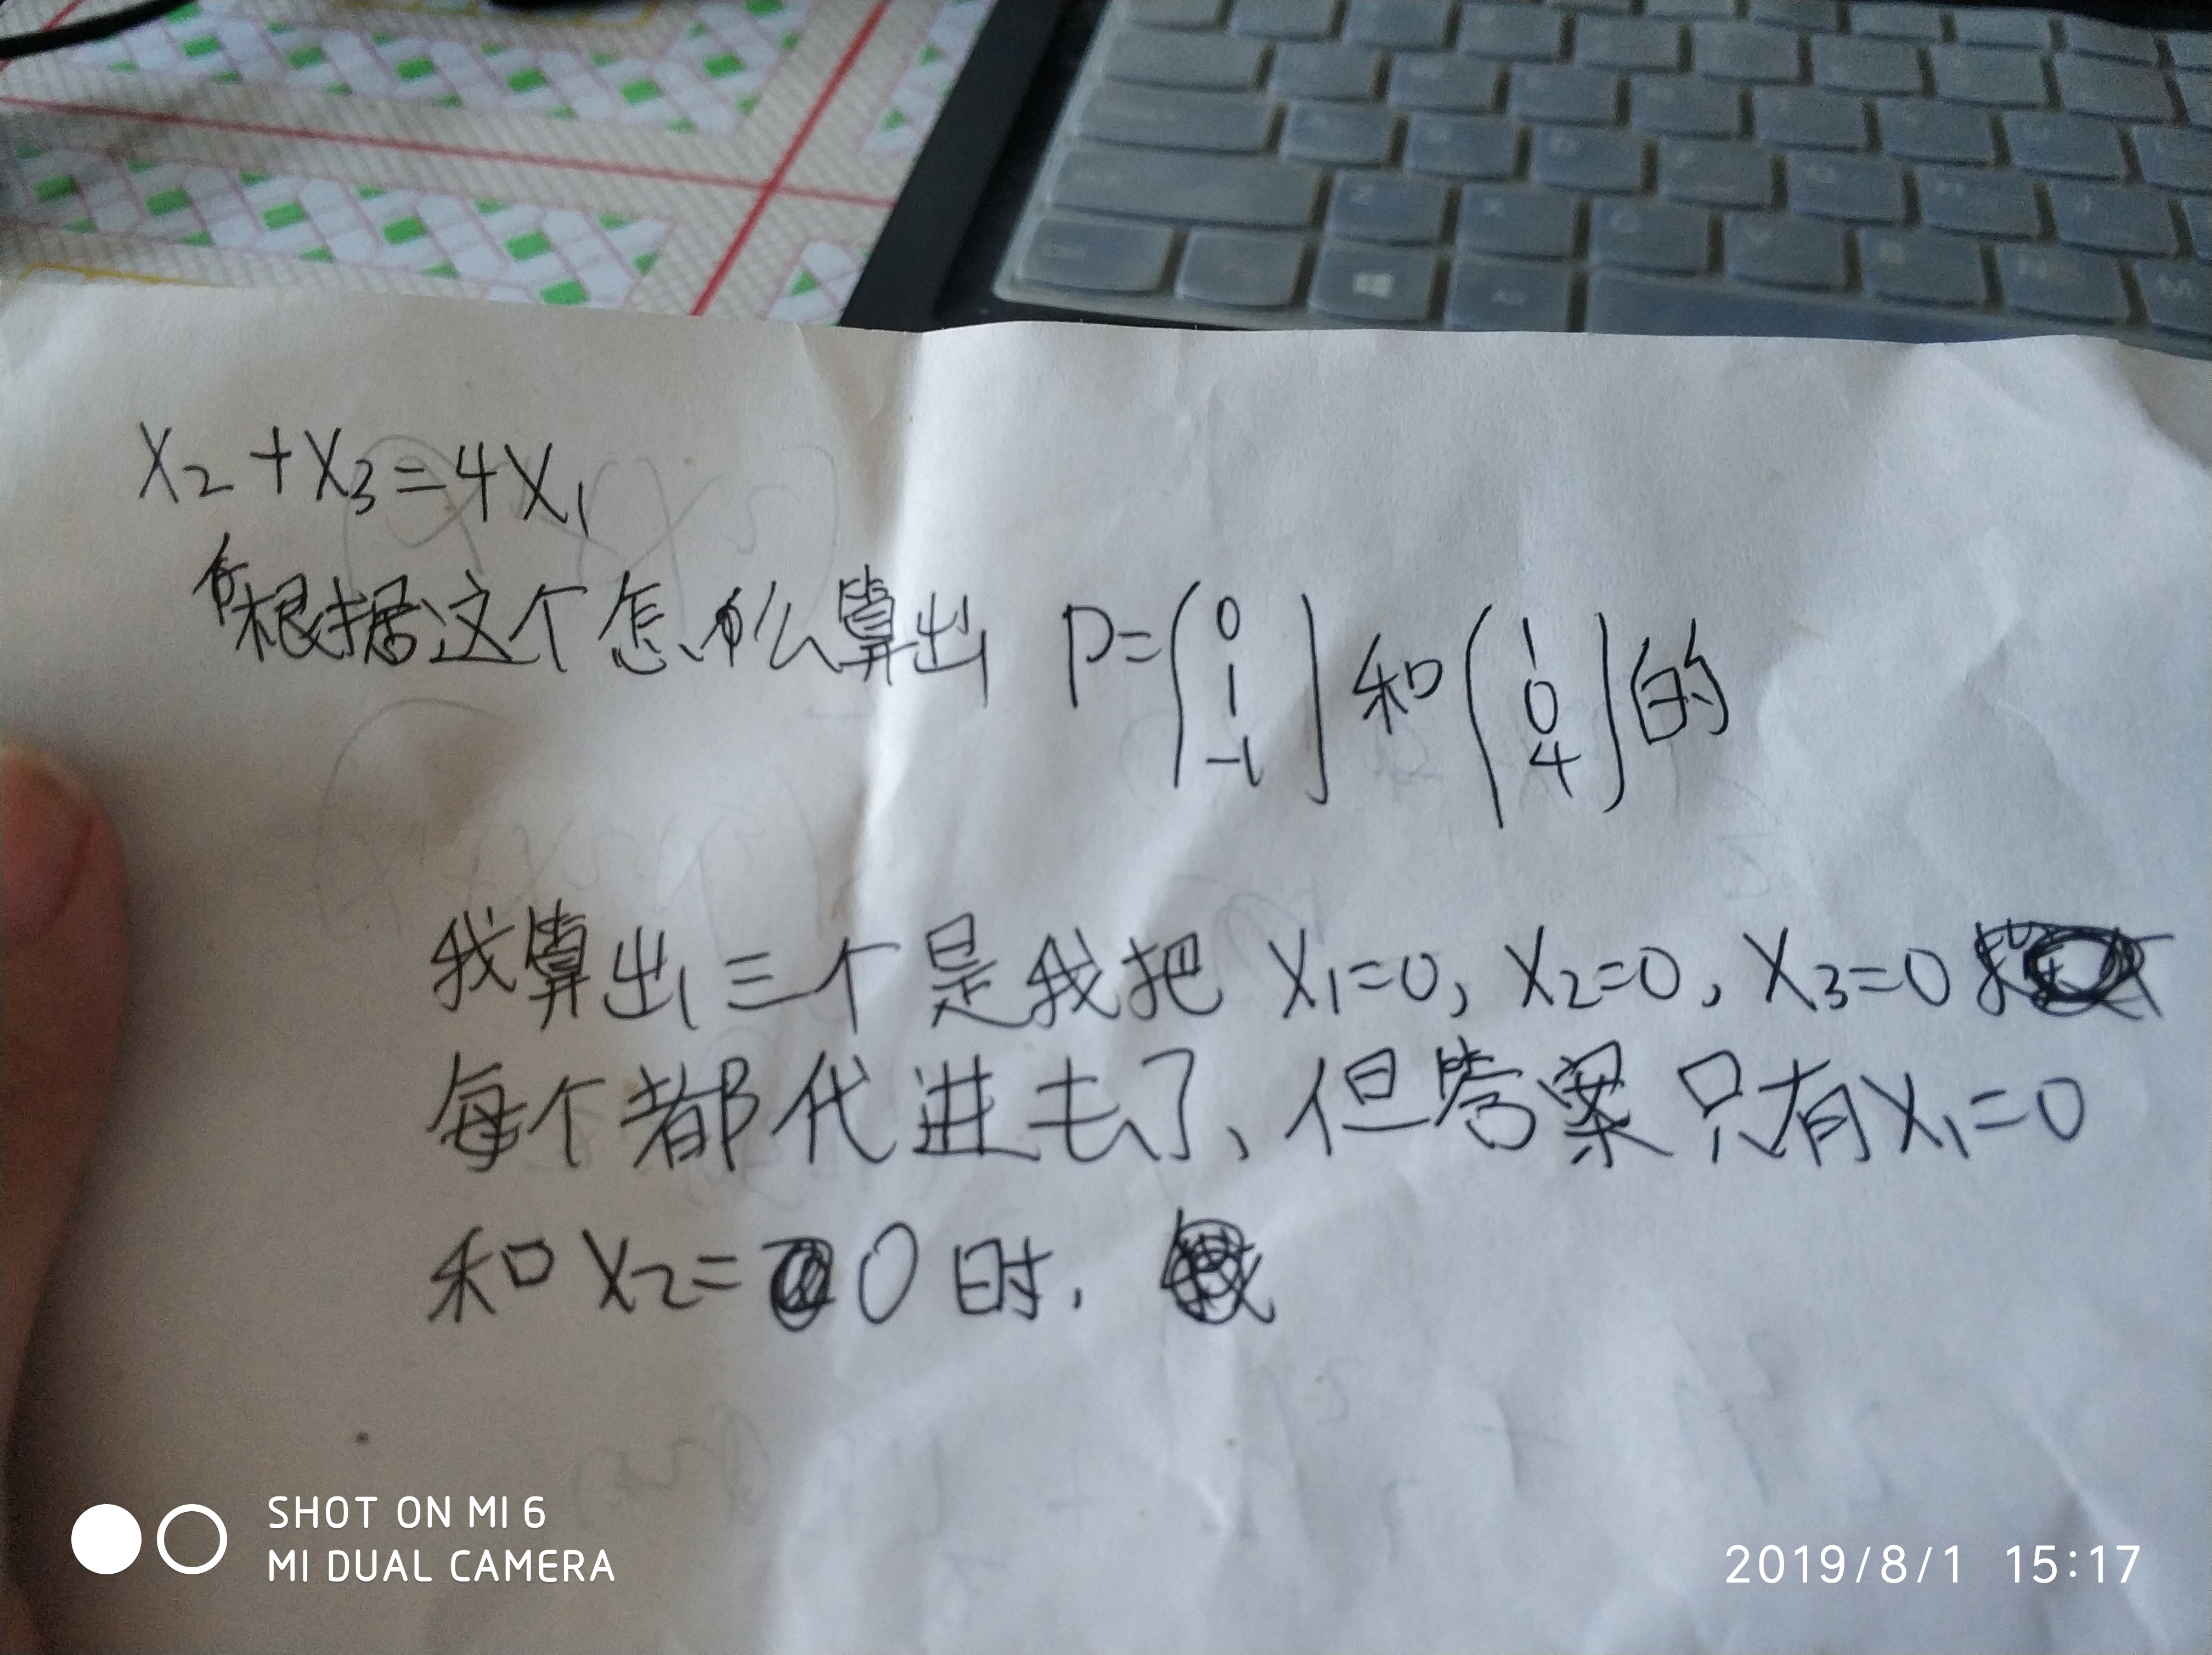 x₂+x₃=4x₁
根据这个怎么算出 P=(0 1 -1)和(1 0 4)的
我算出三个是我把 x₁=0, x₂=0, x₃=0
每个都代进去了、但答案只有x₁=0
和 x₂=0 时.
SHOT ON MI 6
MI DUAL CAMERA
2019/8/1 15:17